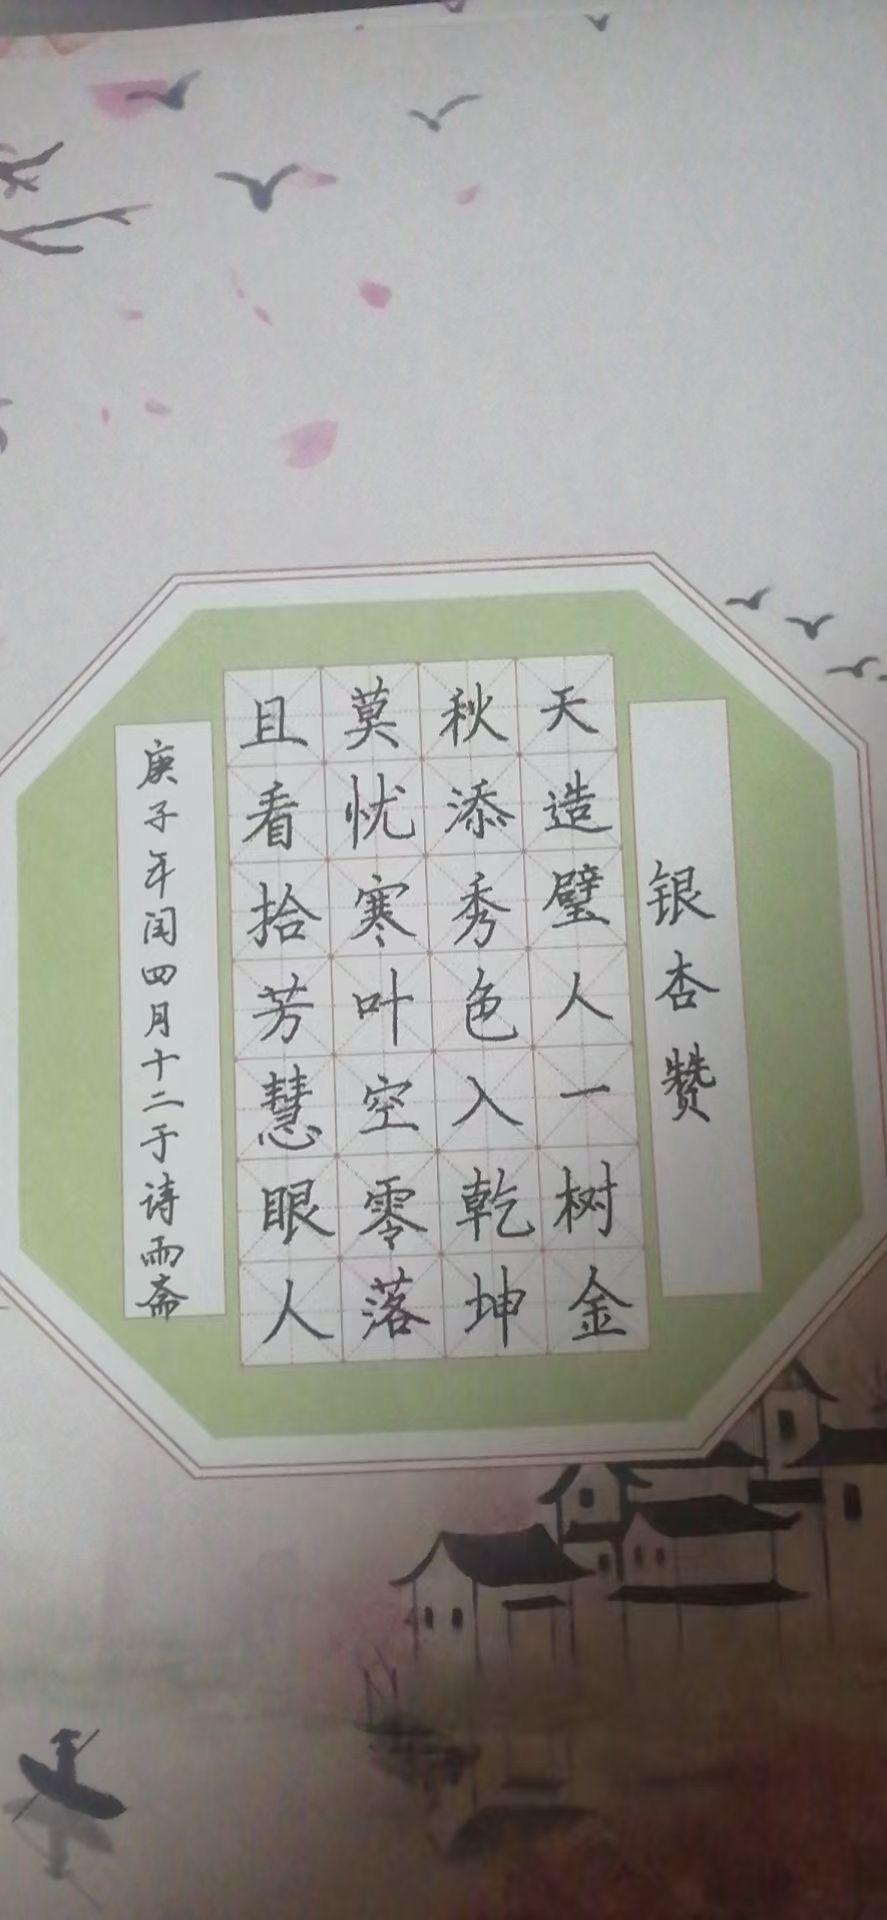 银杏赞
天造璧人一树金
秋添秀色入乾坤
莫忧寒叶空零落
且看拾芳慧眼人
庚子年闰四月十二于诗雨斋